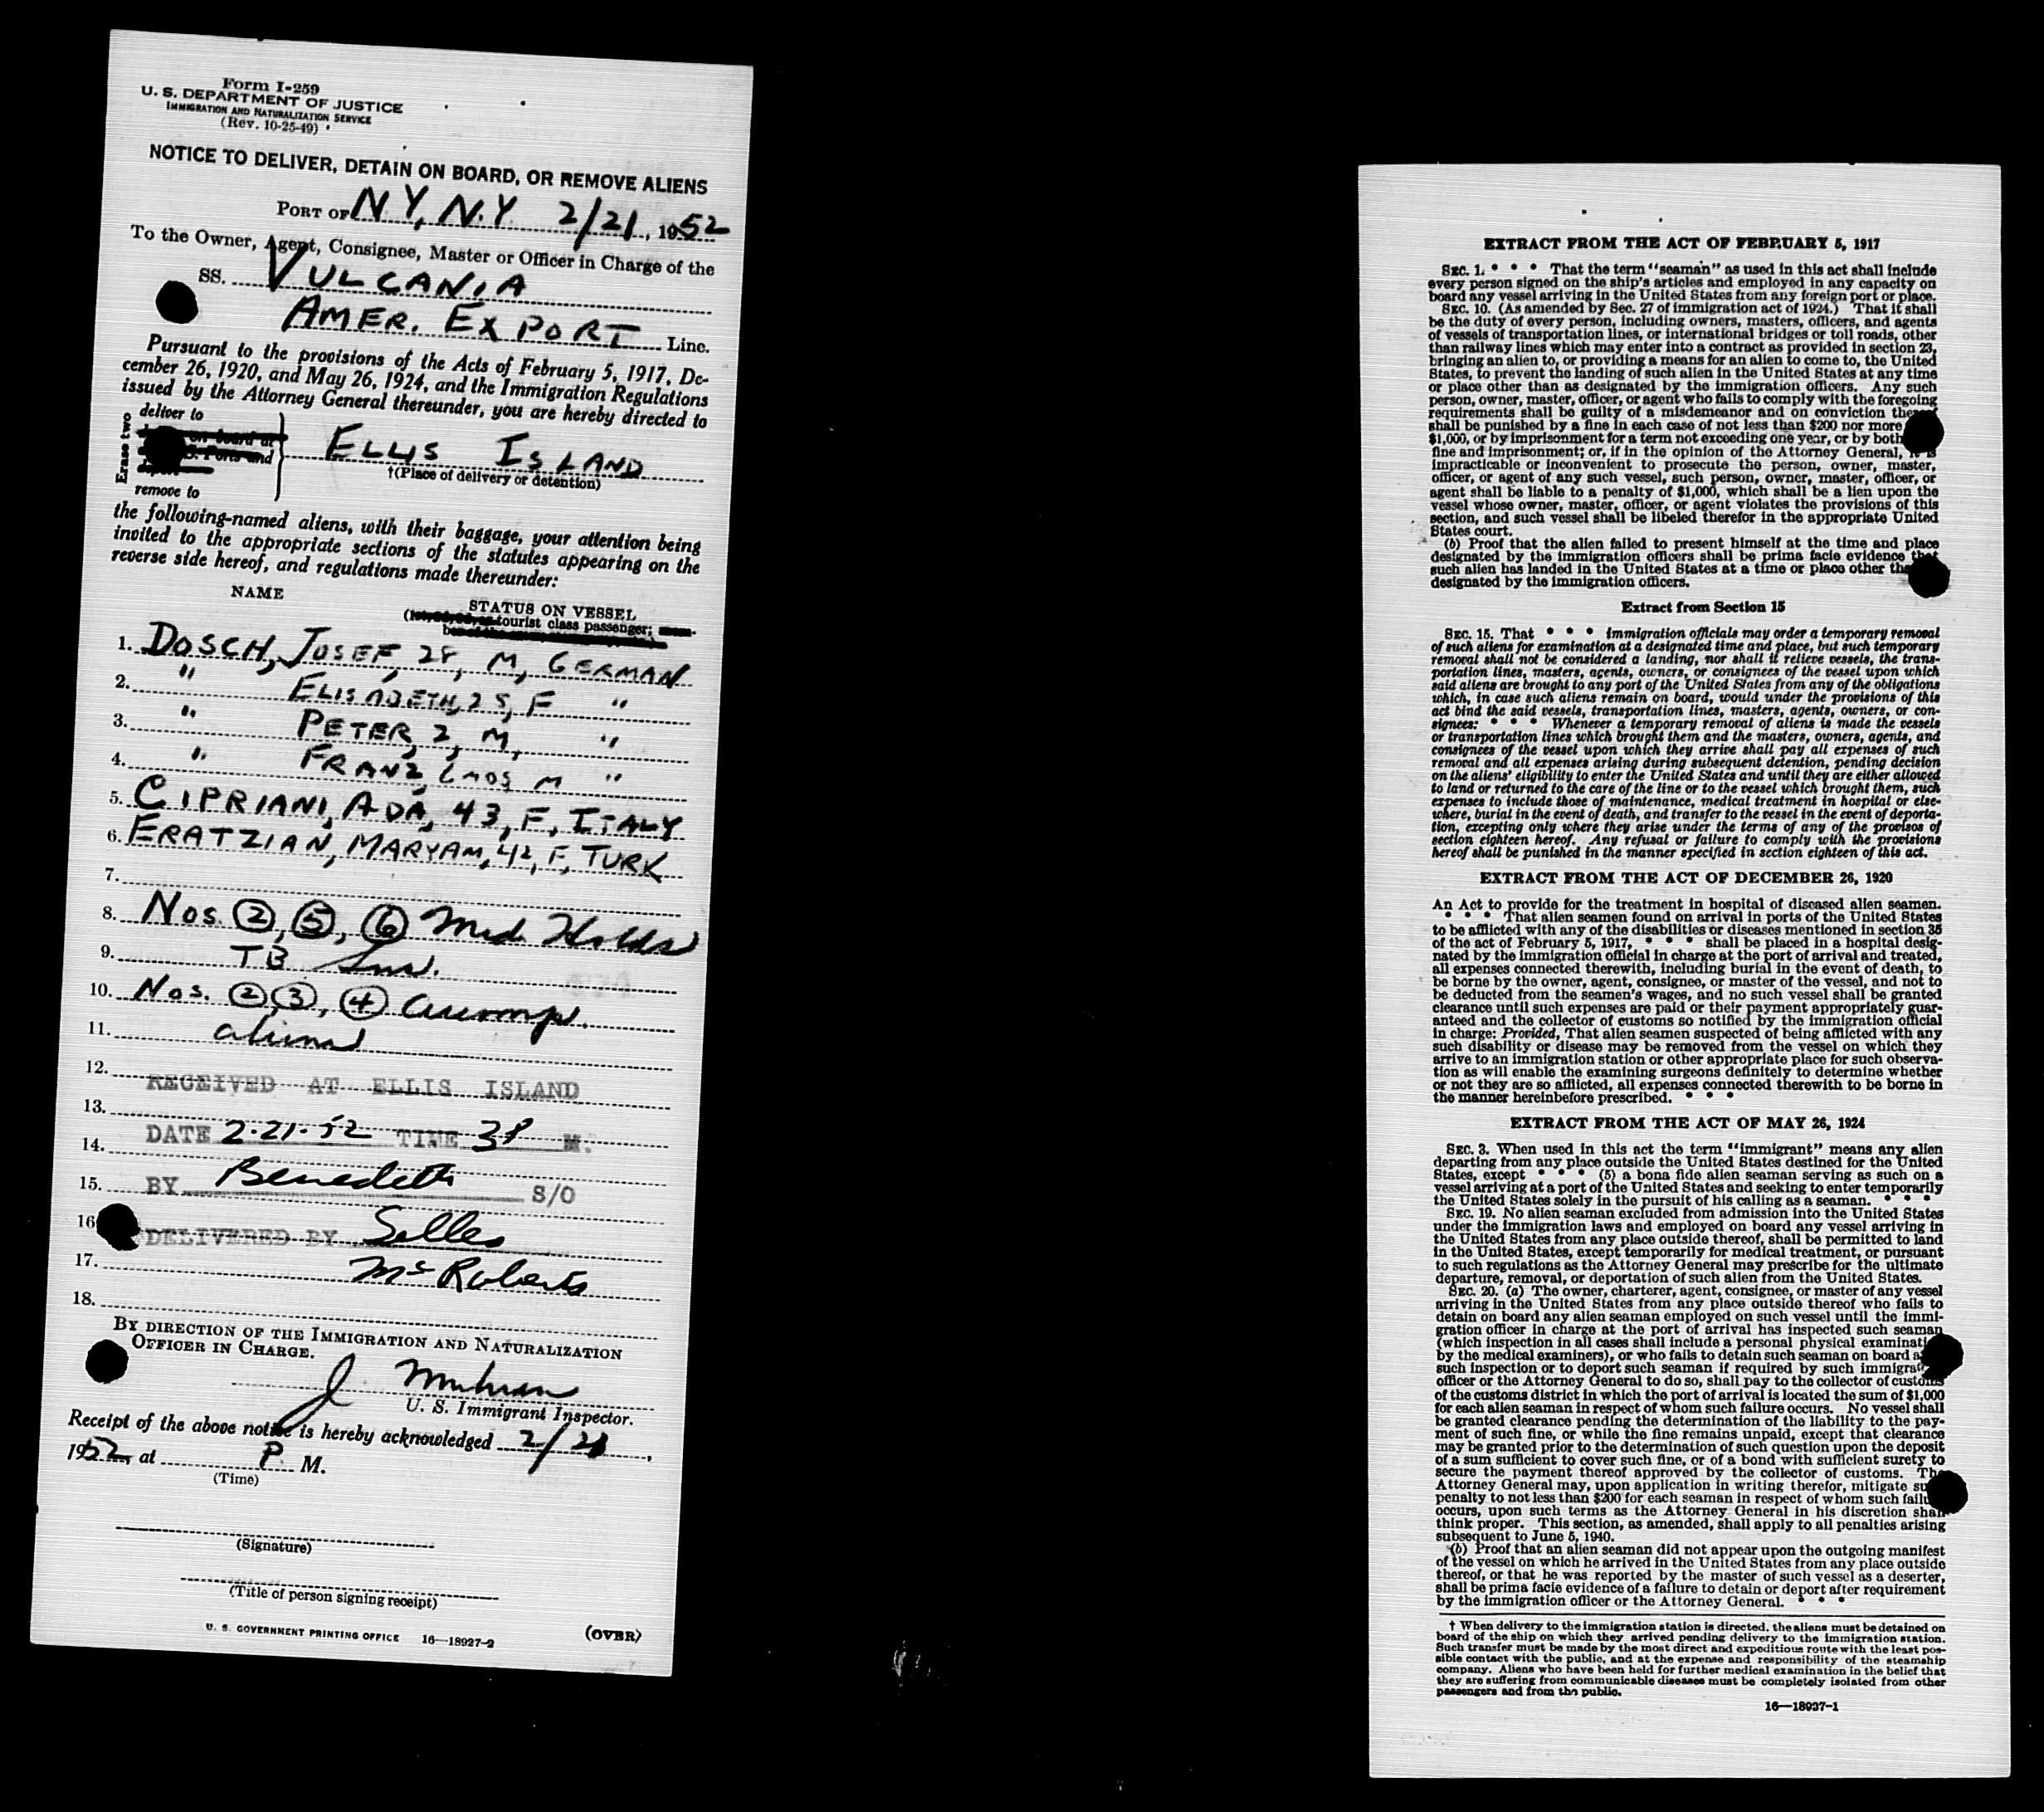 Form I-259
U. S. DEPARTMENT OF JUSTICE
IMMIGRATION AND NATURALIZATION SERVICE
(Rev. 10-25-49)
NOTICE TO DELIVER, DETAIN ON BOARD, OR REMOVE ALIENS
PORT OF N Y, N.Y 2/21, 1952
To the Owner, Agent, Consignee, Master or Officer in Charge of the
SS. VULCANIA
AMER. EXPORT Line.
Pursuant to the provisions of the Acts of February 5, 1917, De-
cember 26, 1920, and May 26, 1924, and the Immigration Regulations
issued by the Attorney General thereunder, you are hereby directed to
Erase two
deliver to
on board at
Ports and
remove to
ELLIS ISLAND
†(Place of delivery or detention)
the following-named aliens, with their baggage, your attention being
invited to the appropriate sections of the statutes appearing on the
reverse side hereof, and regulations made thereunder:
NAME
STATUS ON VESSEL
tourist class passenger;
1. DOSCH, JOSEF, 28, M, GERMAN
2. " ELISABETH, 25, F "
3. " PETER, 2, M, "
4. " FRANZ, 6 MOS M "
5. CIPRIANI, ADA, 43, F, ITALY
6. ERATZIAN, MARYAM, 42, F, TURK
7.
8. Nos. 2, 5, 6 Med Holds
9. TB Sus.
10. Nos. 2, 3, 4 accomp.
11. aliens
12. RECEIVED AT ELLIS ISLAND
13.
14. DATE 2-21-52 TIME 3P M.
15. BY Benedetti S/O
16 DELIVERED BY Selles
17. McRoberts
18.
BY DIRECTION OF THE IMMIGRATION AND NATURALIZATION
OFFICER IN CHARGE.
J
U. S. Immigrant Inspector.
Receipt of the above notice is hereby acknowledged 2/21,
1952, at P. M.
(Time)
(Signature)
(Title of person signing receipt)
U. S. GOVERNMENT PRINTING OFFICE 16—18927-2 (OVER)
EXTRACT FROM THE ACT OF FEBRUARY 5, 1917
SEC. 1. * * * That the term "seaman" as used in this act shall include
every person signed on the ship's articles and employed in any capacity on
board any vessel arriving in the United States from any foreign port or place.
SEC. 10. (As amended by Sec. 27 of immigration act of 1924.) That it shall
be the duty of every person, including owners, masters, officers, and agents
of vessels of transportation lines, or international bridges or toll roads, other
than railway lines which may enter into a contract as provided in section 23,
bringing an alien to, or providing a means for an alien to come to, the United
States, to prevent the landing of such alien in the United States at any time
or place other than as designated by the immigration officers. Any such
person, owner, master, officer, or agent who fails to comply with the foregoing
requirements shall be guilty of a misdemeanor and on conviction thereof
shall be punished by a fine in each case of not less than $200 nor more
$1,000, or by imprisonment for a term not exceeding one year, or by both
fine and imprisonment; or, if in the opinion of the Attorney General, it is
impracticable or inconvenient to prosecute the person, owner, master,
officer, or agent of any such vessel, such person, owner, master, officer, or
agent shall be liable to a penalty of $1,000, which shall be a lien upon the
vessel whose owner, master, officer, or agent violates the provisions of this
section, and such vessel shall be libeled therefor in the appropriate United
States court.
(b) Proof that the alien failed to present himself at the time and place
designated by the immigration officers shall be prima facie evidence that
such alien has landed in the United States at a time or place other than
designated by the immigration officers.
Extract from Section 15
SEC. 15. That * * * immigration officials may order a temporary removal
of such aliens for examination at a designated time and place, but such temporary
removal shall not be considered a landing, nor shall it relieve vessels, the trans-
portation lines, masters, agents, owners, or consignees of the vessel upon which
said aliens are brought to any port of the United States from any of the obligations
which, in case such aliens remain on board, would under the provisions of this
act bind the said vessels, transportation lines, masters, agents, owners, or con-
signees: * * * Whenever a temporary removal of aliens is made the vessels
or transportation lines which brought them and the masters, owners, agents, and
consignees of the vessel upon which they arrive shall pay all expenses of such
removal and all expenses arising during subsequent detention, pending decision
on the aliens' eligibility to enter the United States and until they are either allowed
to land or returned to the care of the line or to the vessel which brought them, such
expenses to include those of maintenance, medical treatment in hospital or else-
where, burial in the event of death, and transfer to the vessel in the event of deporta-
tion, excepting only where they arise under the terms of any of the provisos of
section eighteen hereof. Any refusal or failure to comply with the provisions
hereof shall be punished in the manner specified in section eighteen of this act.
EXTRACT FROM THE ACT OF DECEMBER 26, 1920
An Act to provide for the treatment in hospital of diseased alien seamen.
* * * That alien seamen found on arrival in ports of the United States
to be afflicted with any of the disabilities or diseases mentioned in section 35
of the act of February 5, 1917, * * * shall be placed in a hospital desig-
nated by the immigration official in charge at the port of arrival and treated,
all expenses connected therewith, including burial in the event of death, to
be borne by the owner, agent, consignee, or master of the vessel, and not to
be deducted from the seamen's wages, and no such vessel shall be granted
clearance until such expenses are paid or their payment appropriately guar-
anteed and the collector of customs so notified by the immigration official
in charge: Provided, That alien seamen suspected of being afflicted with any
such disability or disease may be removed from the vessel on which they
arrive to an immigration station or other appropriate place for such observa-
tion as will enable the examining surgeons definitely to determine whether
or not they are so afflicted, all expenses connected therewith to be borne in
the manner hereinbefore prescribed. * * *
EXTRACT FROM THE ACT OF MAY 26, 1924
SEC. 3. When used in this act the term "immigrant" means any alien
departing from any place outside the United States destined for the United
States, except * * * (5) a bona fide alien seaman serving as such on a
vessel arriving at a port of the United States and seeking to enter temporarily
the United States solely in the pursuit of his calling as a seaman. * * *
SEC. 19. No alien seaman excluded from admission into the United States
under the immigration laws and employed on board any vessel arriving in
the United States from any place outside thereof, shall be permitted to land
in the United States, except temporarily for medical treatment, or pursuant
to such regulations as the Attorney General may prescribe for the ultimate
departure, removal, or deportation of such alien from the United States.
SEC. 20. (a) The owner, charterer, agent, consignee, or master of any vessel
arriving in the United States from any place outside thereof who fails to
detain on board any alien seaman employed on such vessel until the immi-
gration officer in charge at the port of arrival has inspected such seaman
(which inspection in all cases shall include a personal physical examination
by the medical examiners), or who fails to detain such seaman on board a
such inspection or to deport such seaman if required by such immigrat
officer or the Attorney General to do so, shall pay to the collector of customs
of the customs district in which the port of arrival is located the sum of $1,000
for each alien seaman in respect of whom such failure occurs. No vessel shall
be granted clearance pending the determination of the liability to the pay-
ment of such fine, or while the fine remains unpaid, except that clearance
may be granted prior to the determination of such question upon the deposit
of a sum sufficient to cover such fine, or of a bond with sufficient surety to
secure the payment thereof approved by the collector of customs. The
Attorney General may, upon application in writing therefor, mitigate su
penalty to not less than $200 for each seaman in respect of whom such failu
occurs, upon such terms as the Attorney General in his discretion shall
think proper. This section, as amended, shall apply to all penalties arising
subsequent to June 5, 1940.
(b) Proof that an alien seaman did not appear upon the outgoing manifest
of the vessel on which he arrived in the United States from any place outside
thereof, or that he was reported by the master of such vessel as a deserter,
shall be prima facie evidence of a failure to detain or deport after requirement
by the immigration officer or the Attorney General. * * *
† When delivery to the immigration station is directed, the aliens must be detained on
board of the ship on which they arrived pending delivery to the immigration station.
Such transfer must be made by the most direct and expeditious route with the least pos-
sible contact with the public, and at the expense and responsibility of the steamship
company. Aliens who have been held for further medical examination in the belief that
they are suffering from communicable diseases must be completely isolated from other
passengers and from the public.
16—18927-1